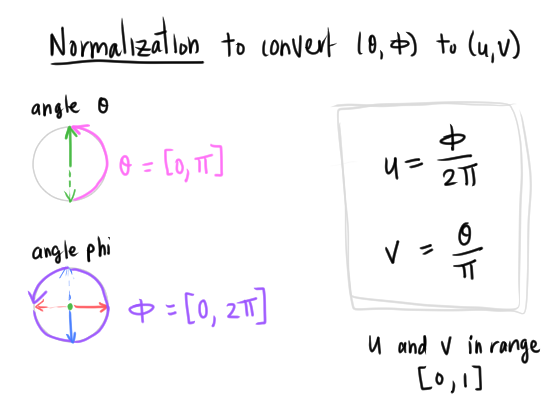 Normalization to convert (θ, ϕ) to (u, v)
angle θ
θ = [0, π]
angle phi
ϕ = [0, 2π]
u = ϕ/2π
v = θ/π
u and v in range
[0, 1]